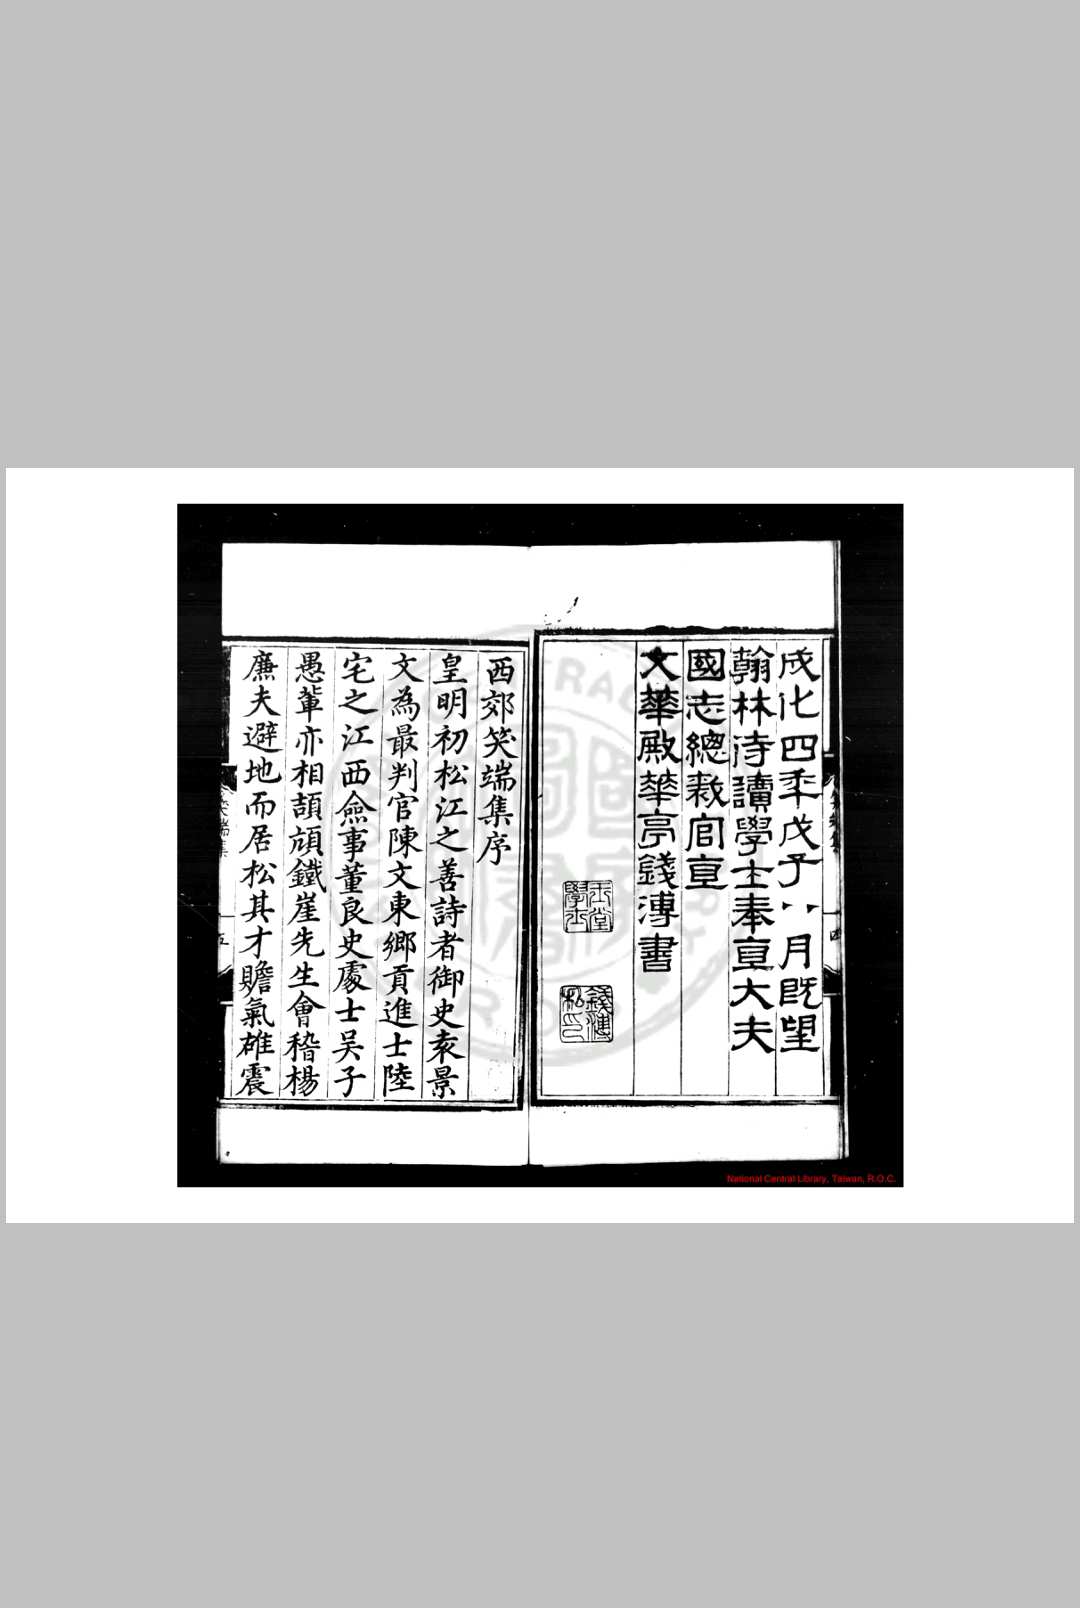 成化四年戊子八月既望
翰林侍讀學士奉直大夫
國志總裁官直
文華殿華亭錢溥書
玉堂學士
錢溥私印
笑端集
四
西郊笑端集序
皇明初松江之善詩者御史袁景
文為最判官陳文東鄉貢進士陸
宅之江西僉事董良史處士吳子
愚輩亦相頡頏鐵崖先生會稽楊
廉夫避地而居松其才贍氣雄震
笑端集
五
National Central Library, Taiwan, R.O.C.